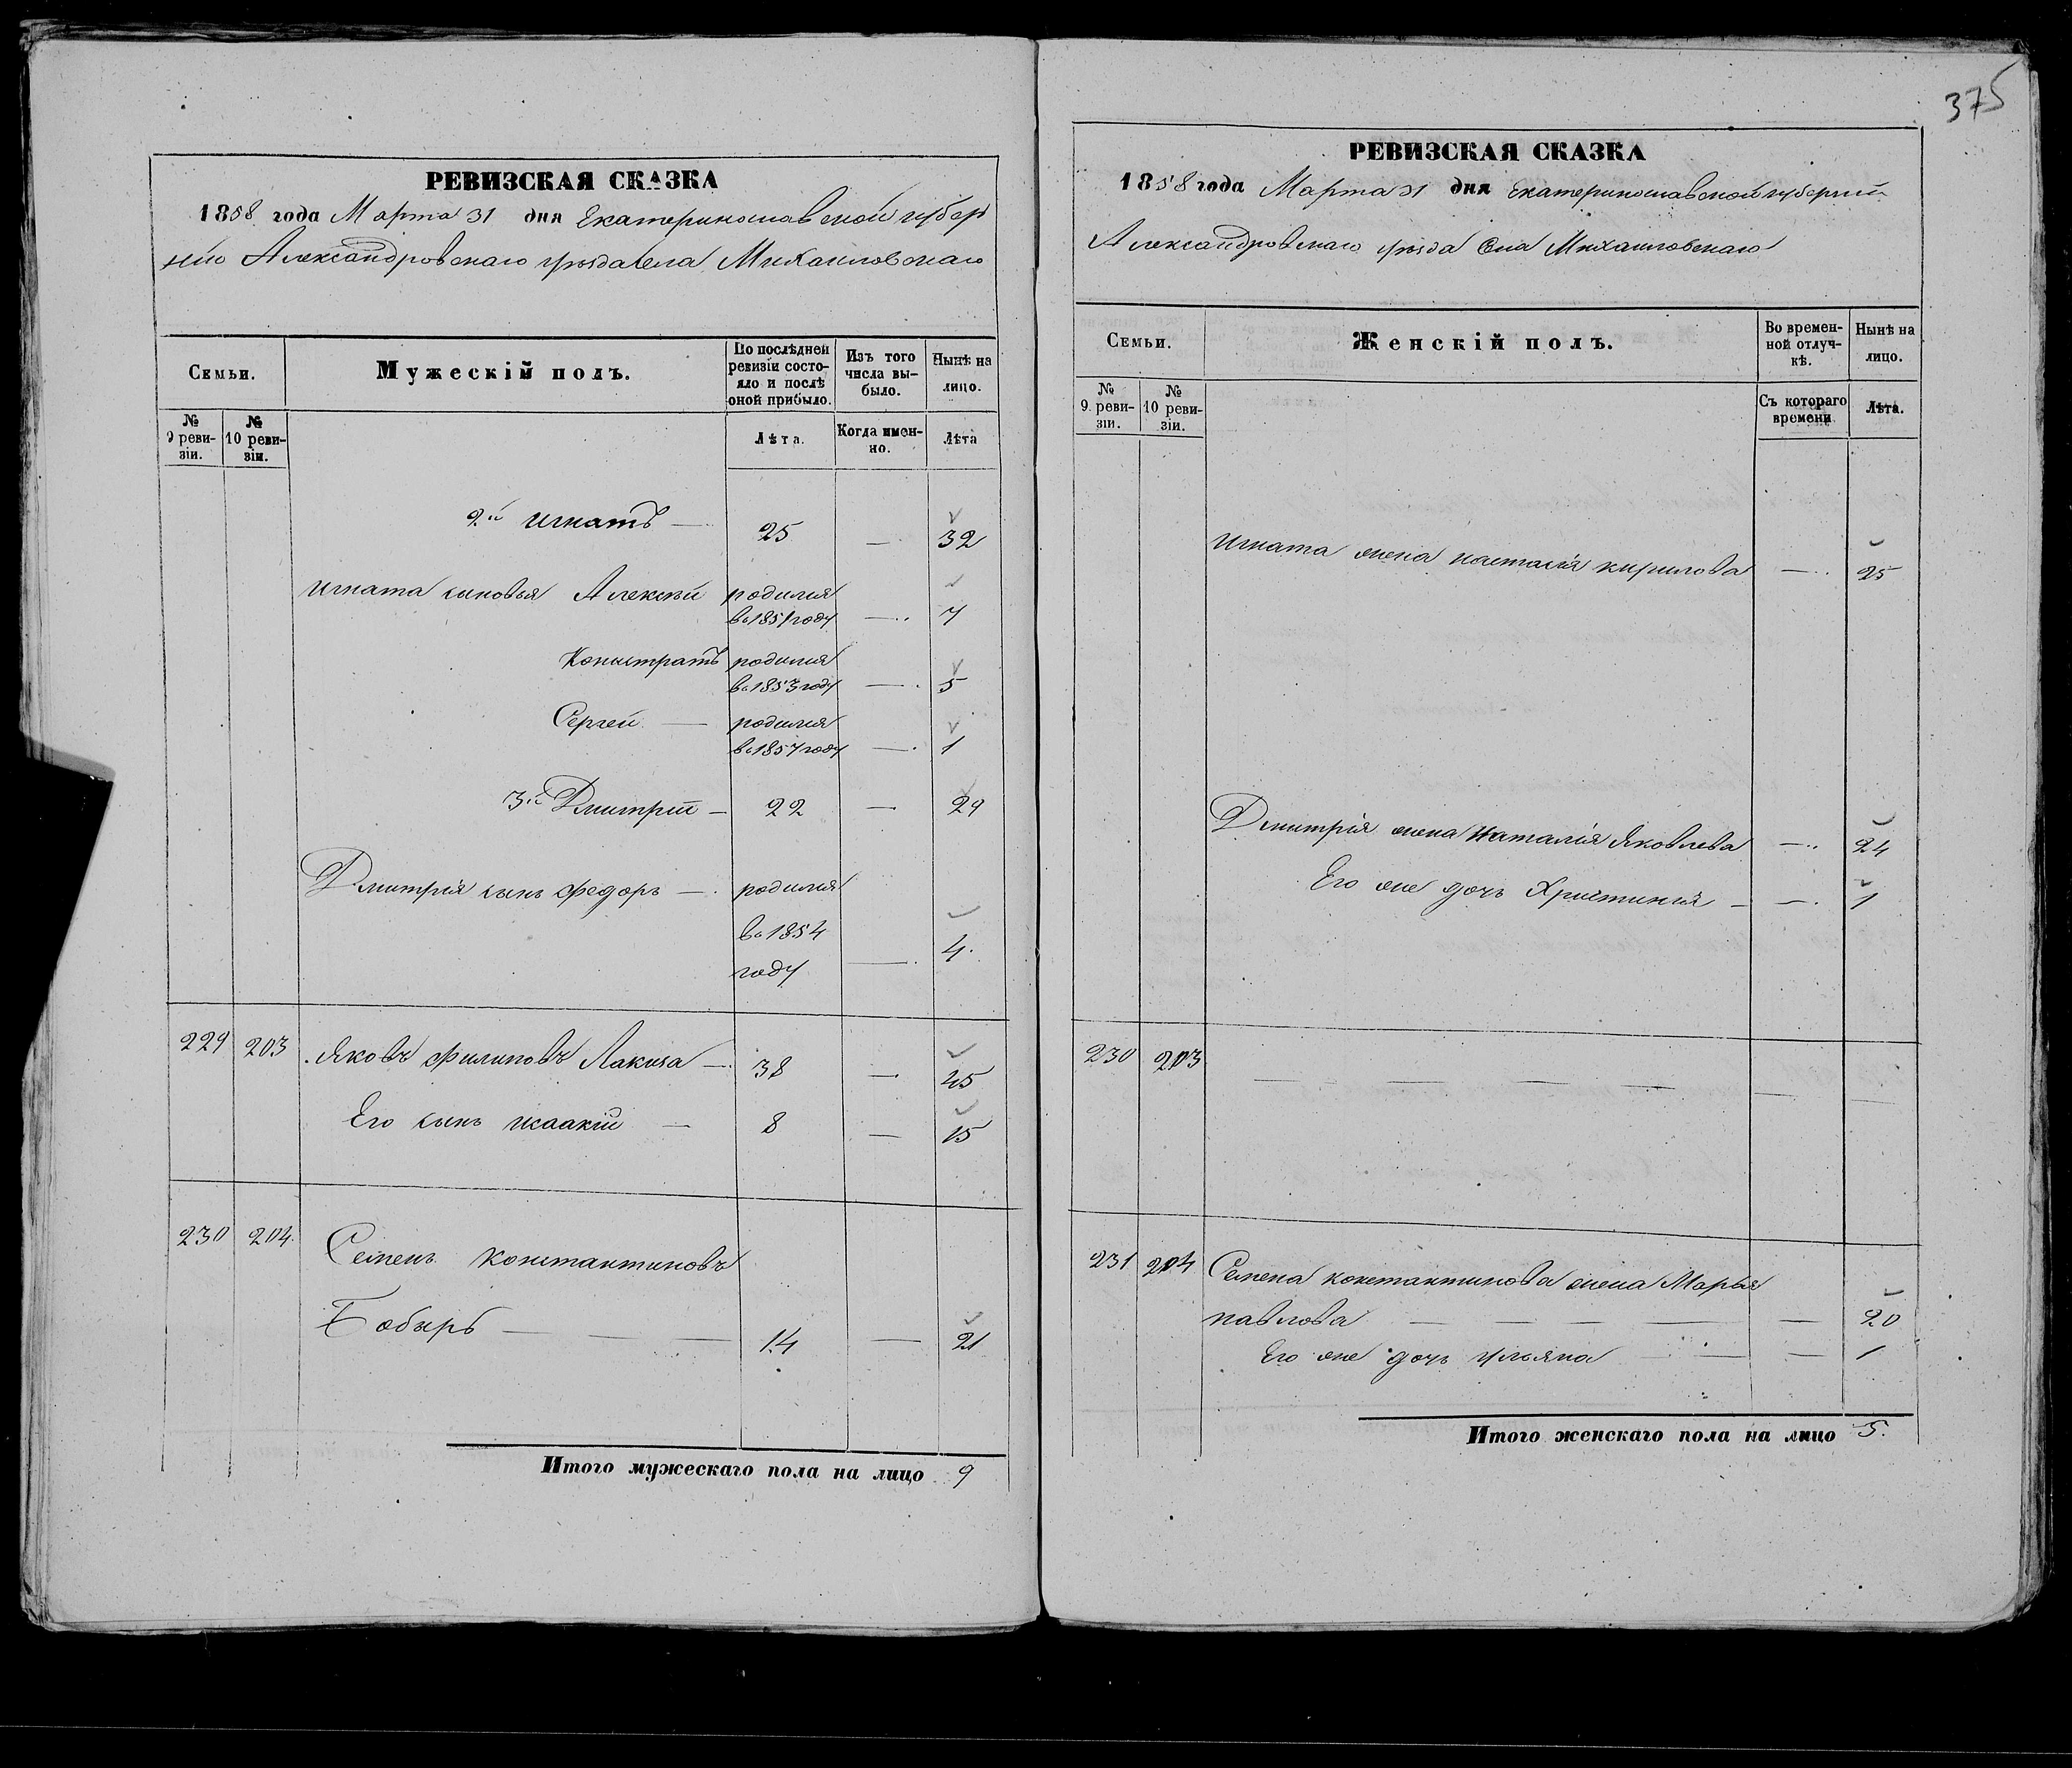 РЕВИЗСКАЯ СКАЗКА
1858 года Марта 31 дня Екатеринославской губер
нию Александровскаго уѣзда села Михаиловскаго
Семьи.
Мужескій полъ.
По послѣдней ревизіи состояло и послѣ оной прибыло.
Изъ того числа выбыло.
Нынѣ на лицо.
№ 9 ревизіи.
№ 10 ревизіи.
Лѣта.
Когда именно.
Лѣта
2й Игнатъ — 25 — 32
Игната сыновья Алексѣй родился
въ 1851 году — 7
родился
въ 1853 году — 5
Сергей — родился
въ 1857 году — 1
3й Дмитрій — 22 — 29
Дмитрія сынъ Федоръ — родился
въ 1854
году — 4.
229 203 Яковъ Филиповъ Лакиза — 38 — 45
Его сынъ Исаакій — 8 — 15
230 204. Семенъ Константиновъ
Бобырь — — 14 — 21
Итого мужескаго пола на лицо 9
375
РЕВИЗСКАЯ СКАЗКА
1858 года Марта 31 дня Екатеринославской губерніи
Александровскаго уѣзда Села Михаиловскаго
Семьи.
Женскій полъ.
Во временной отлучкѣ.
Нынѣ на лицо.
№ 9. ревизіи.
№ 10 ревизіи.
Съ котораго времени
Лѣта.
Игната жена Настасія Кирилова — 25
Дмитрія жена Наталія Яковлева — 24
Его же дочь Христинія — — 1
230 203 — — — — — —
231 204 Семена Константинова жена Марья
Павлова — — — — — 20
Его же дочь Ульяна — — — 1
Итого женскаго пола на лицо 5.